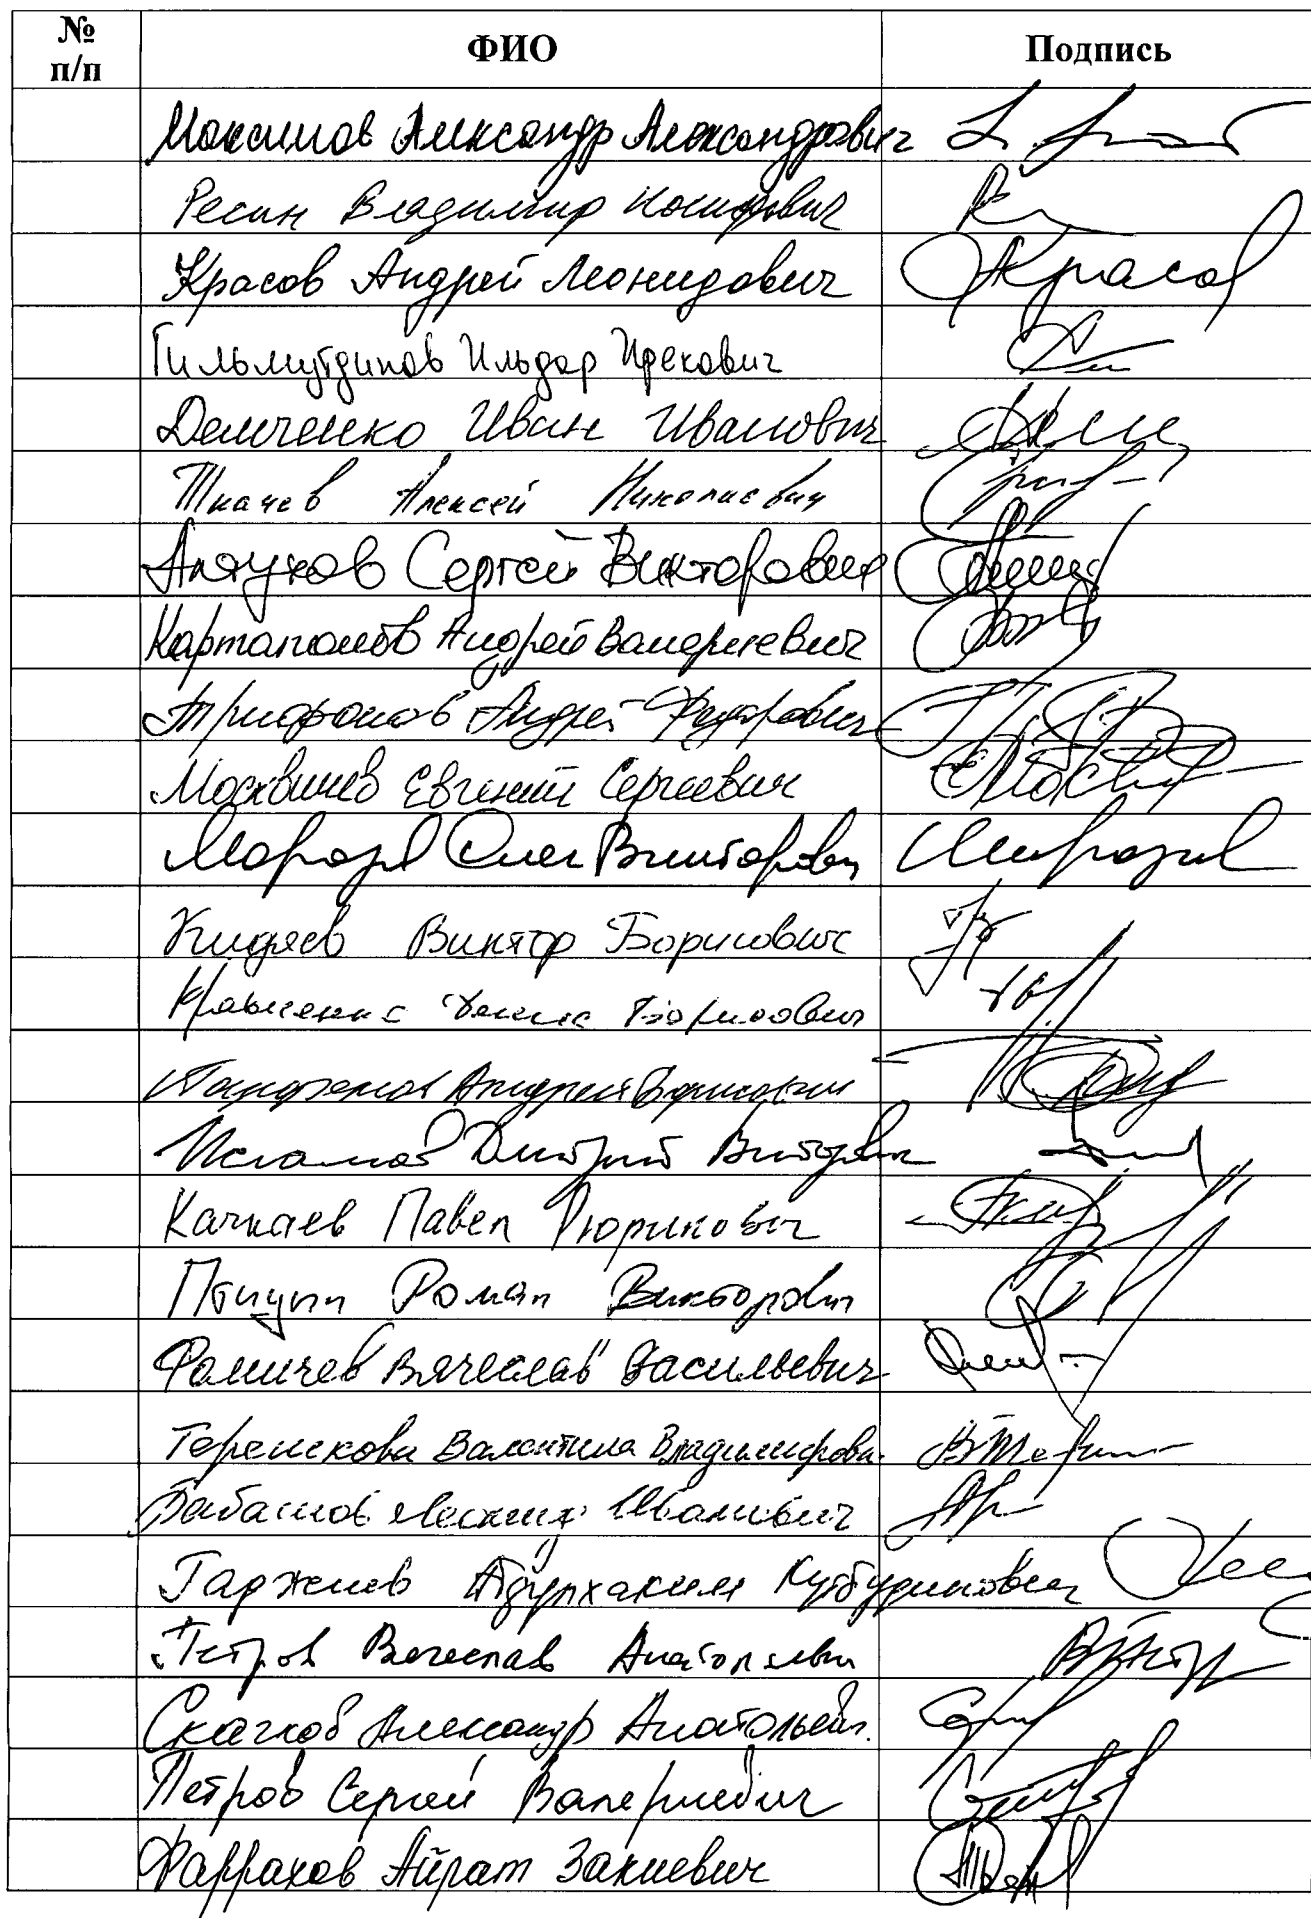 № п/п ФИО Подпись
Максимов Александр Александрович
Ресин Владимир Иосифович
Красов Андрей Леонидович Красов
Гильмутдинов Ильдар Ирекович
Демченко Иван Иванович
Ткачев Алексей Николаевич
Алтухов Сергей Викторович
Картаполов Андрей Валериевич
Трифонов Андрей Федорович
Москвичев Евгений Сергеевич
Морозов Олег Викторович Морозов
Кидяев Виктор Борисович
Кравченко Денис Борисович
Андрей Борисович
Исламов Дмитрий Викторович
Качкаев Павел Рюрикович
Птицын Роман Викторович
Фомичев Вячеслав Васильевич
Терешкова Валентина Владимировна
Бабашов Леонид Иванович
Гаджиев Абдулхаким Кутбудинович
Петров Вячеслав Анатольевич
Скачков Александр Анатольевич
Петров Сергей Валериевич
Фаррахов Айрат Закиевич